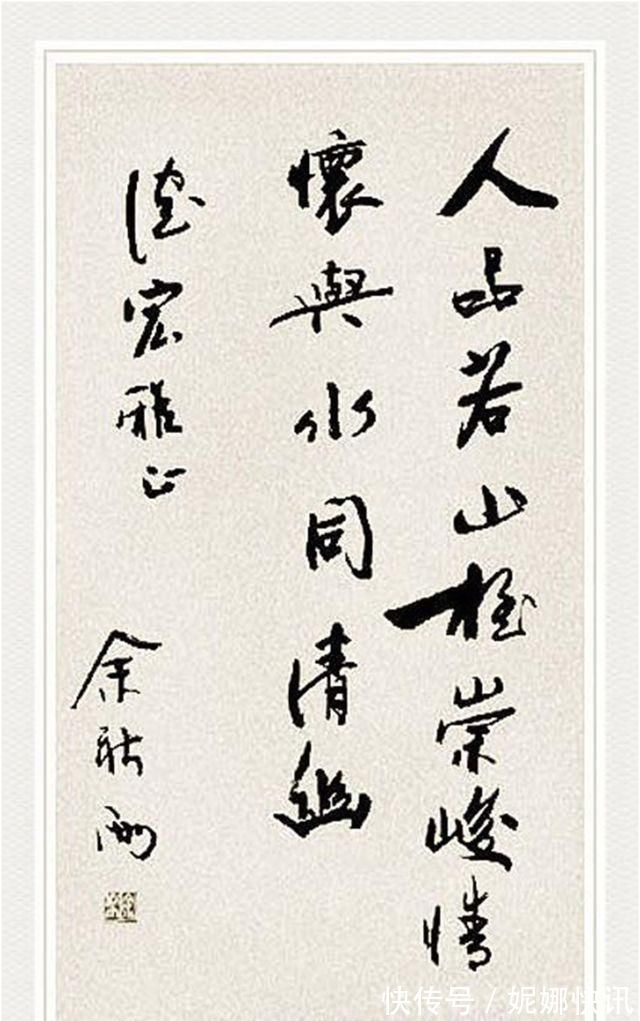 人品若山極崇峻情
懷與水同清幽
德宏雅正
余秋雨
快传号 / 妮娜快讯